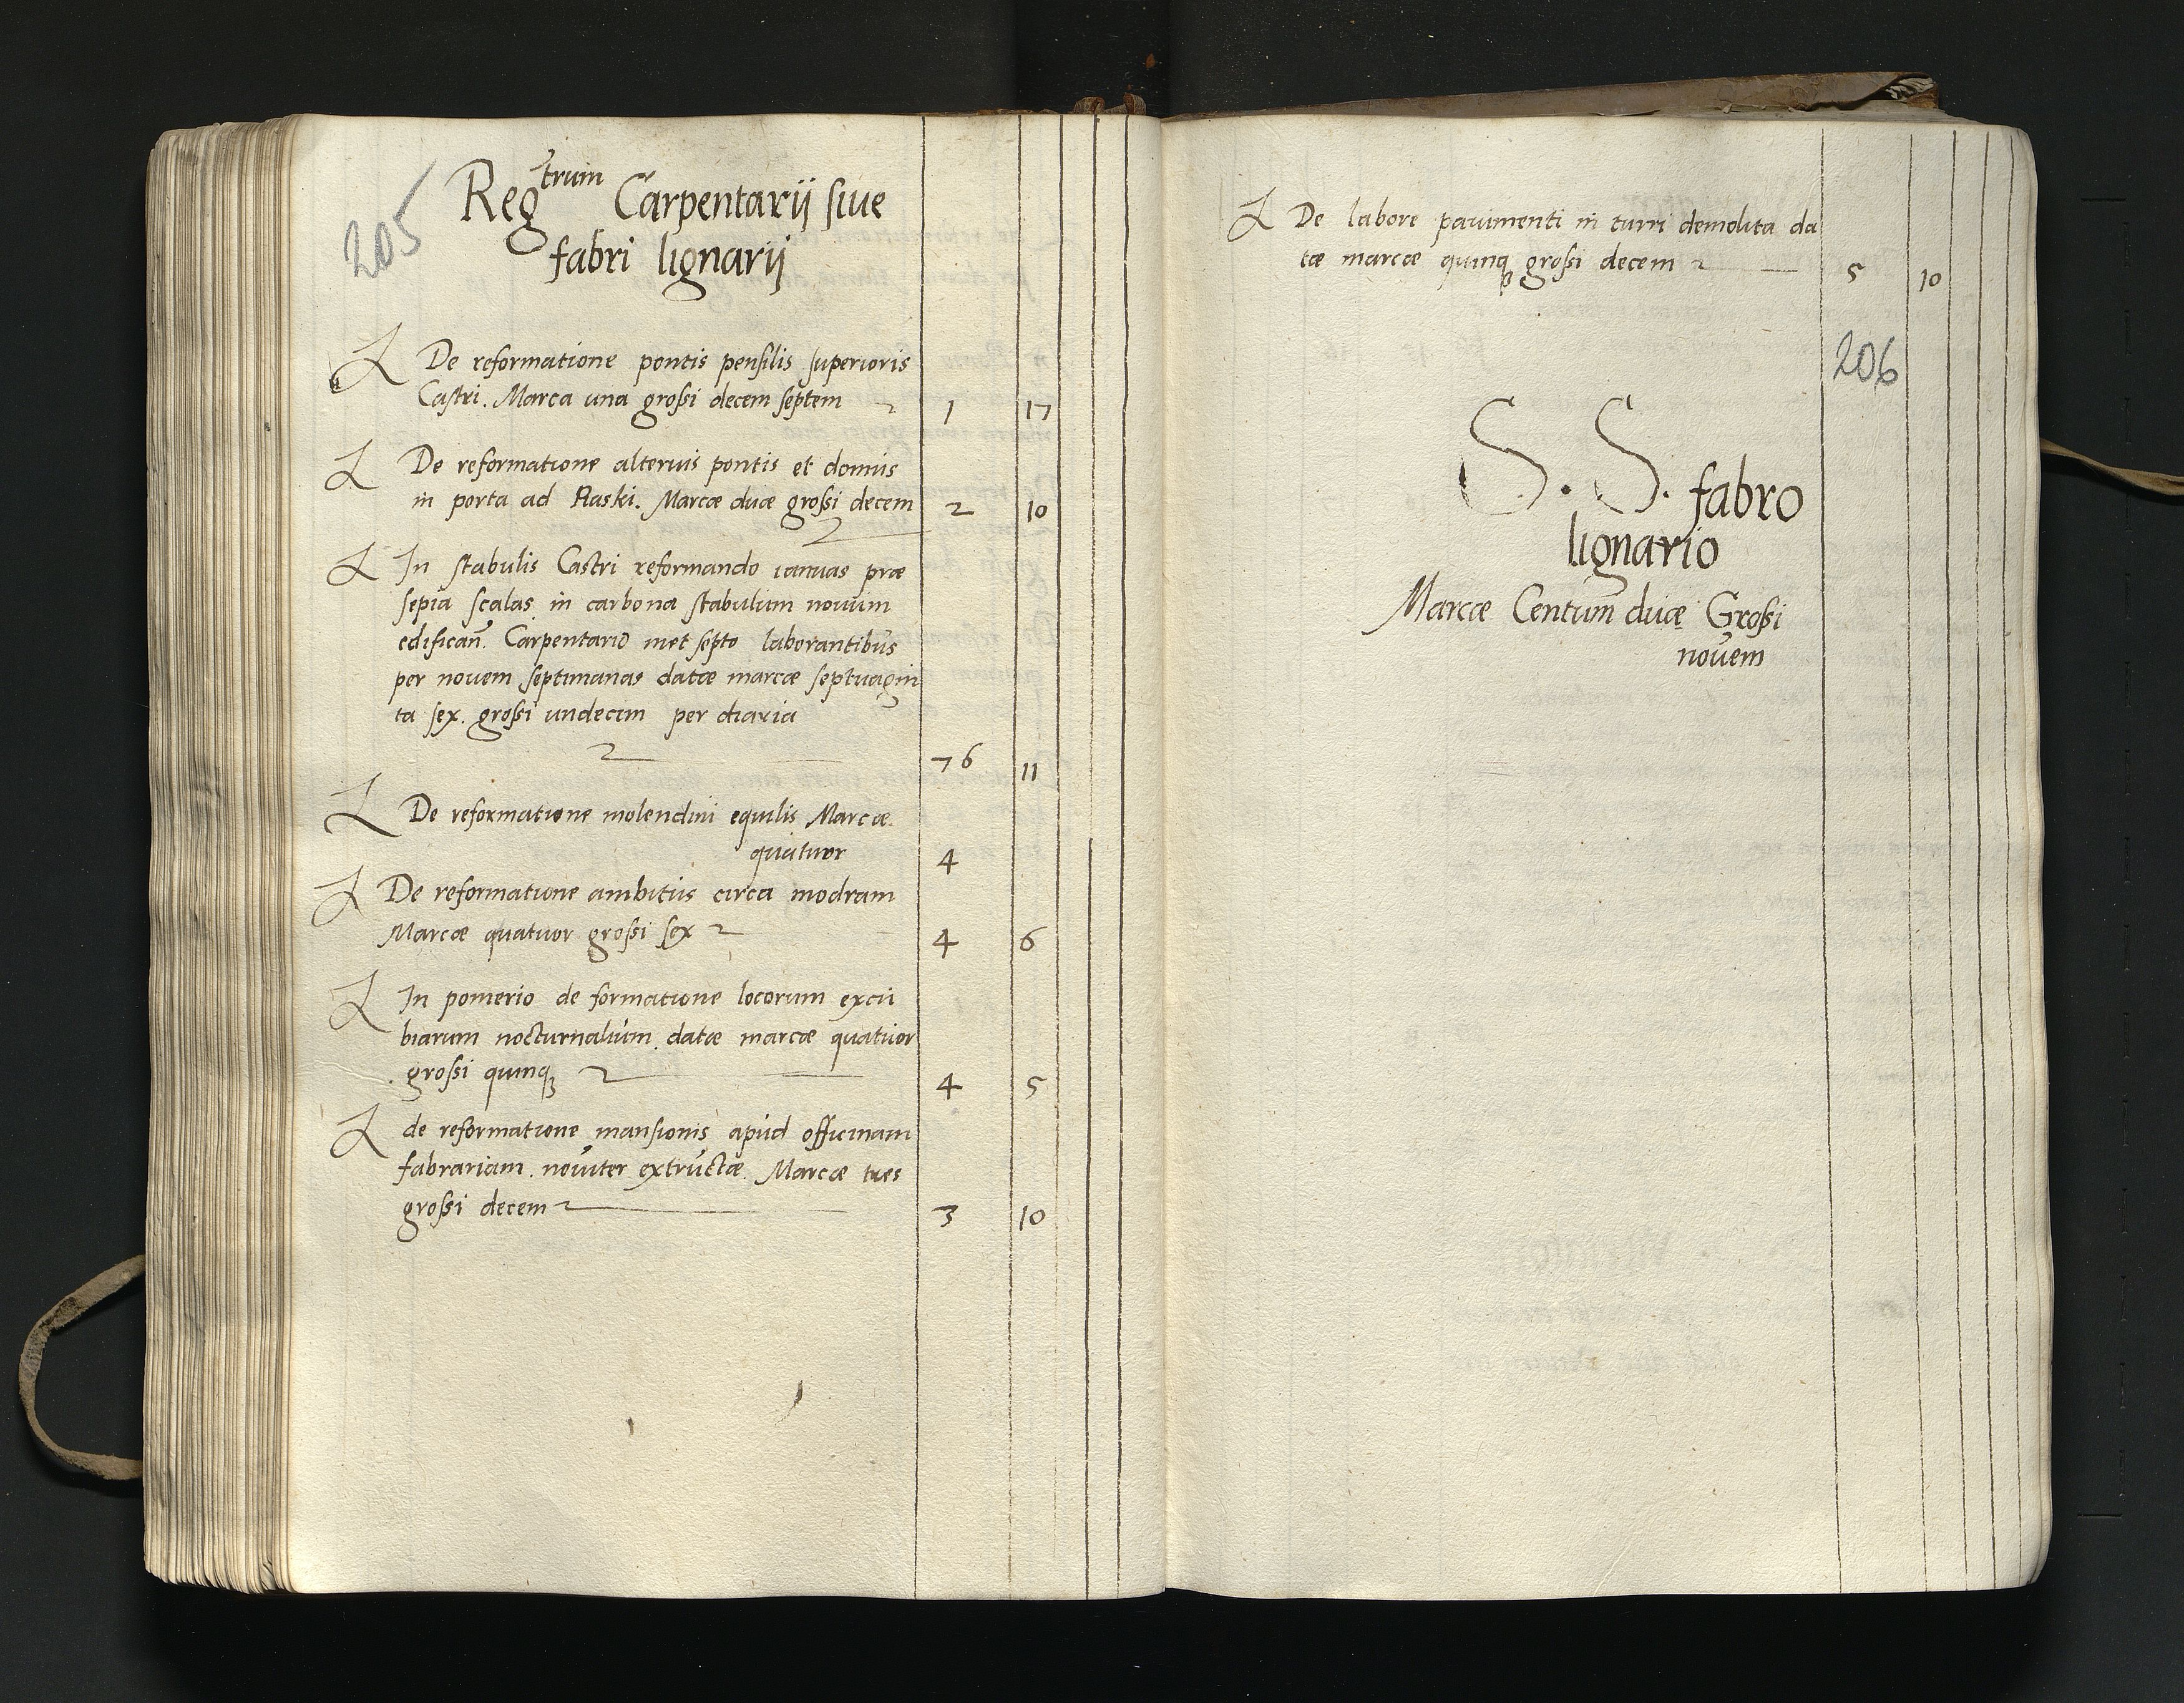 205
Regtrum Carpentarij siue
fabri lignarij
De reformatione pontis pensilis superioris
Castri. Marca una grossi decem septem 1 17
De reformatione alterius pontis et domus
in porta ad Raski. Marcæ duæ grossi decem 2 10
In stabulis Castri reformando ianuas præ
sepia scalas in carbona stabulum nouum
edifican̄. Carpentario met septo laborantibus
per nouem septimanas datæ marcæ septuagin
ta sex. grossi undecim per diaria
76 11
De reformatione molendini equilis Marcæ
quatuor 4
De reformatione ambitus circa modram
Marcæ quatuor grossi sex 4 6
In pomerio de formatione locorum excu
biarum nocturnalium. datæ marcæ quatuor
grossi quinqꝫ 4 5
de reformatione mansionis apud officinam
fabrariam. nouiter extructæ. Marcæ tres
grossi decem 3 10
De labore pauimenti in turri demolita da
tæ marcæ quinqꝫ grossi decem 5 10
206
S. S. fabro
lignario
Marcæ Centum duæ Grossi
nouem